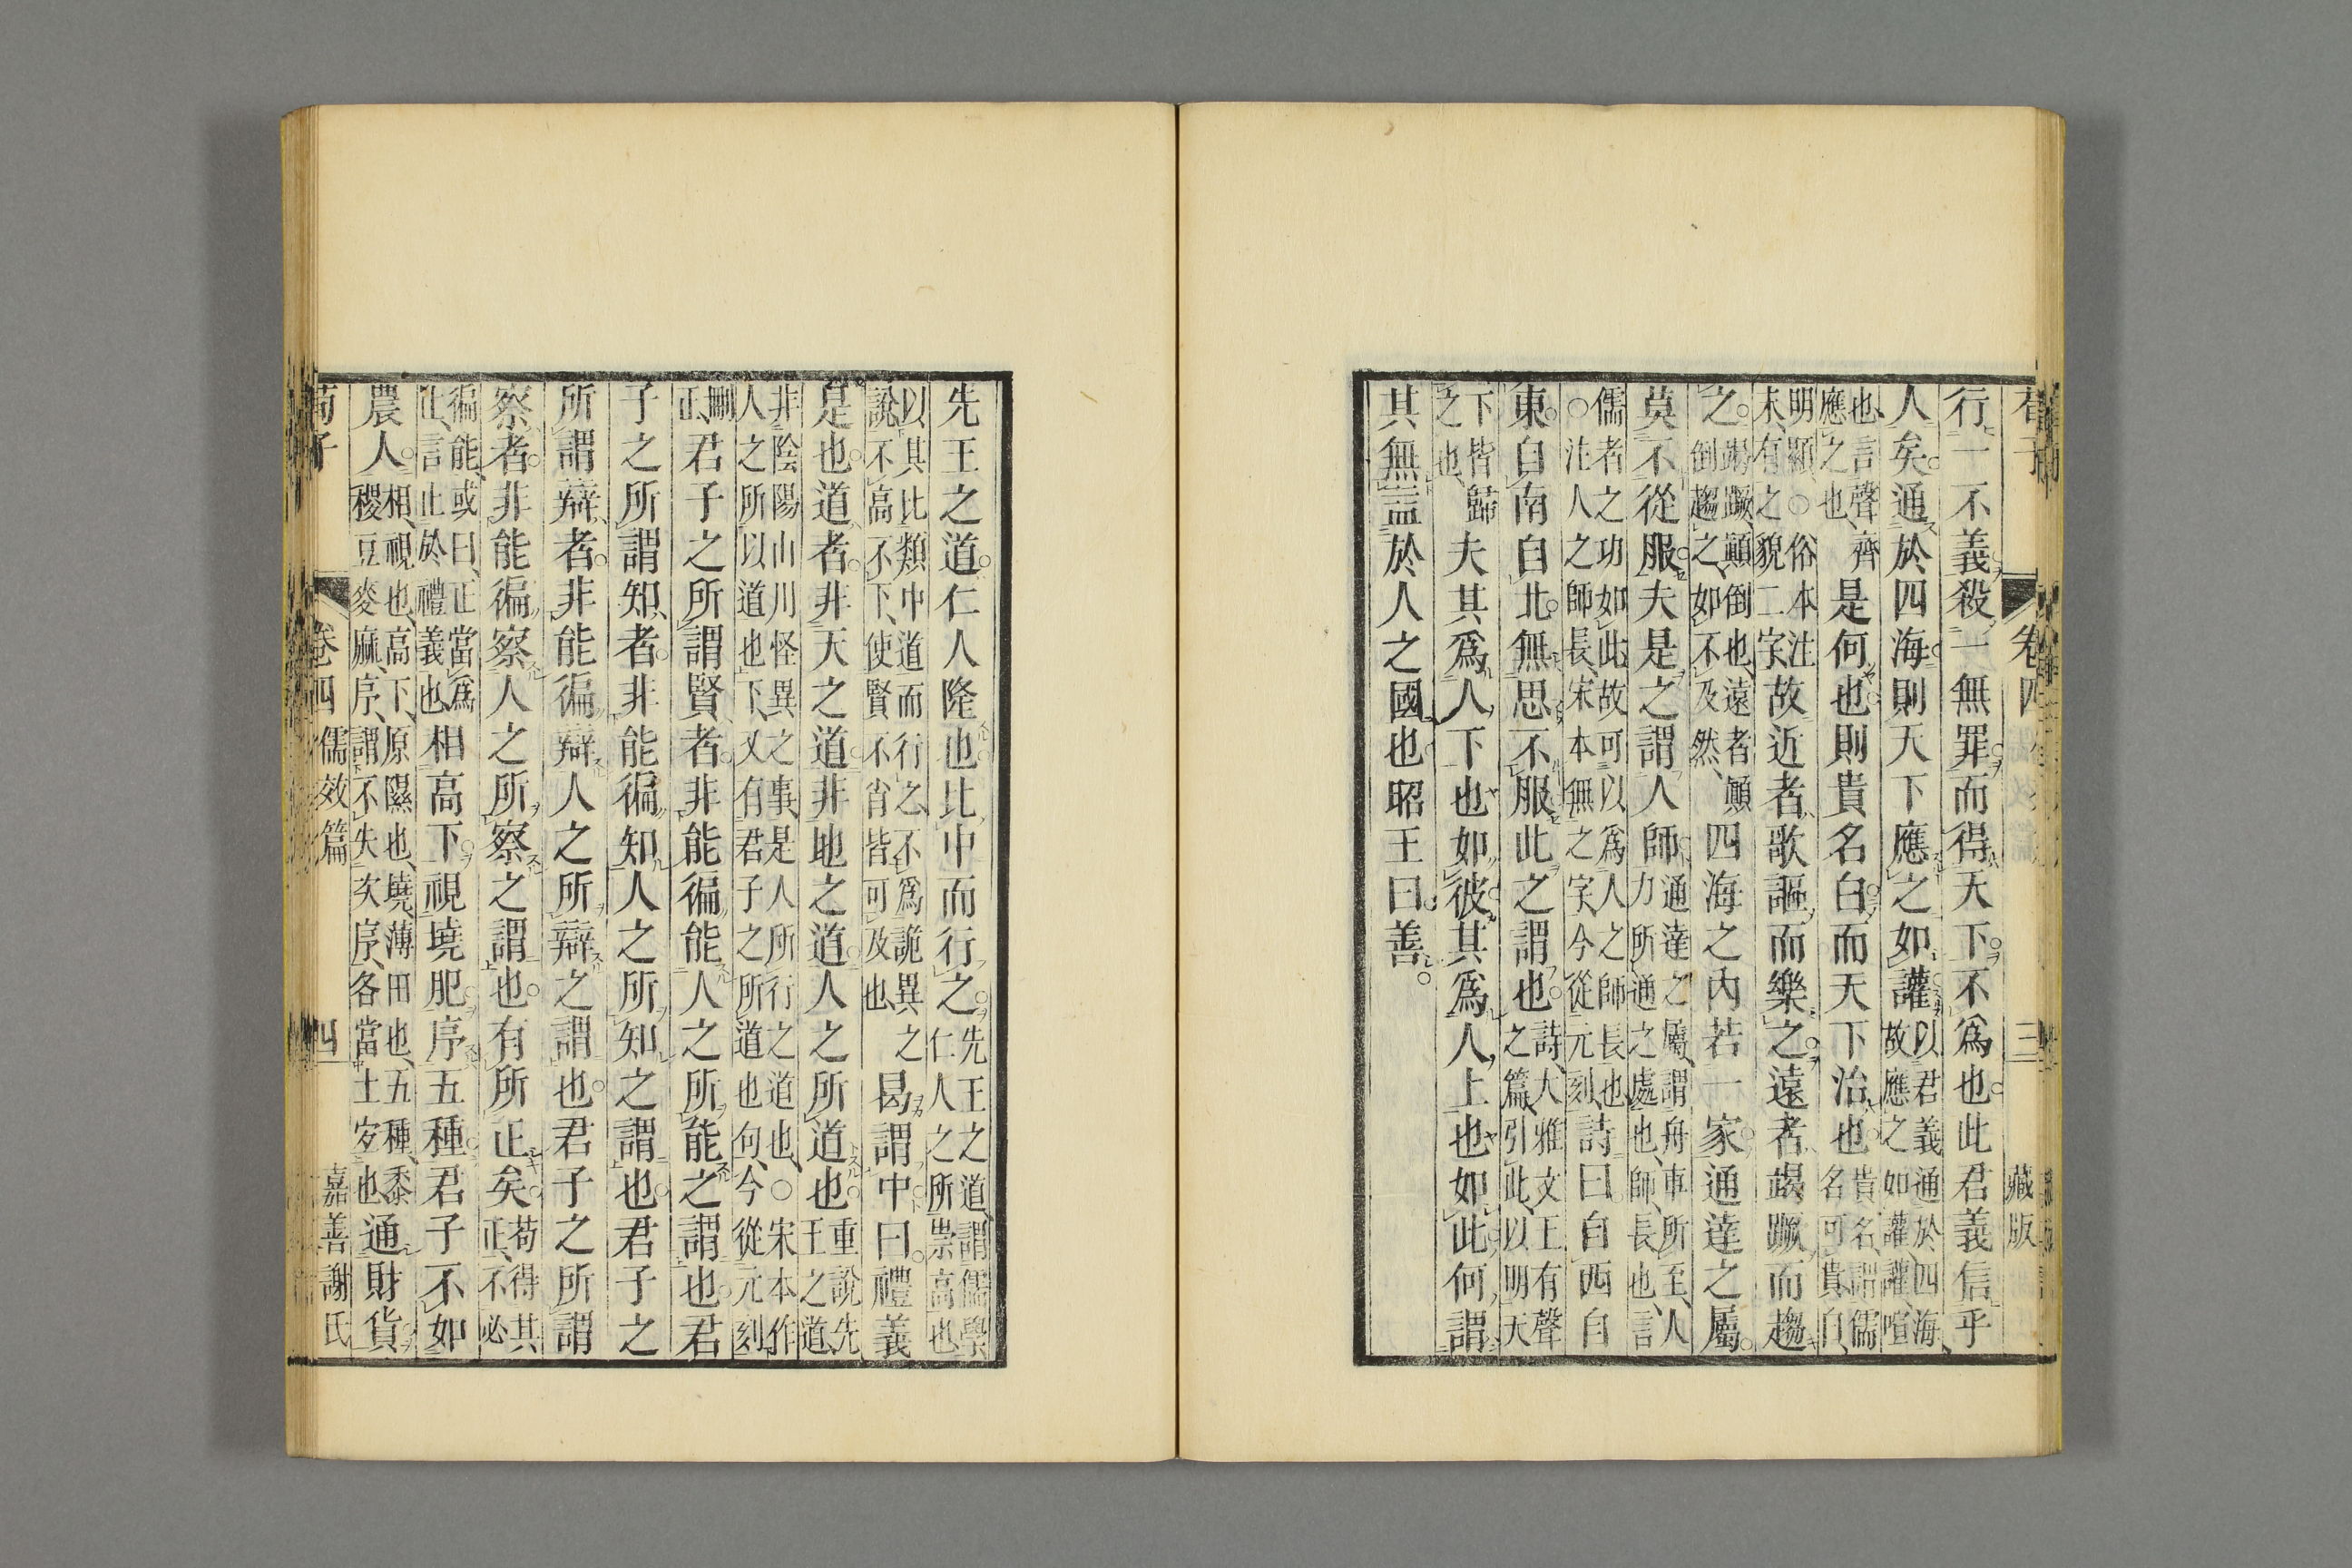 荀子 卷四 三 藏版
行一不義殺一無罪而得天下不爲也此君義信乎
人矣通於四海則天下應之如讙以君義通於四海故應之如讙讙喧
也言聲齊應之也是何也則貴名白而天下治也貴名謂儒名可貴白
明顯○俗本注末有之貌二字故近者歌謳而樂之遠者竭蹶而趨
之竭蹶顚倒也遠者顚倒趨之如不及然四海之內若一家通達之屬
莫不從服夫是之謂人師通達之屬謂舟車所至人力所通之處也師長也言
儒者之功如此故可以爲人之師長也○注人之師長宋本無之字今從元刻詩曰自西自
東自南自北無思不服此之謂也詩大雅文王有聲之篇引此以明天
下皆歸之也夫其爲人下也如彼其爲人上也如此何謂
其無益於人之國也昭王曰善
先王之道仁人隆也比中而行之先王之道謂儒學仁人之所崇高也
以其比類中道而行之不爲詭異之說不高不下使賢不肖皆可及也曷謂中曰禮義
是也道者非天之道非地之道人之所道也重說先王之道
非陰陽山川怪異之事是人所行之道也○宋本作人之所以道也下又有君子之所道也句今從元刻
刪正君子之所謂賢者非能徧能人之所能之謂也君
子之所謂知者非能徧知人之所知之謂也君子之
所謂辯者非能徧辯人之所辯之謂也君子之所謂
察者非能徧察人之所察之謂也有所正矣苟得其正不必
徧能或曰正當爲止言止於禮義也相高下視墝肥序五種君子不如
農人相視也高下原隰也墝薄田也五種黍稷豆麥麻序謂不失次序各當土宜也通財貨
荀子 卷四 儒效篇 四 嘉善謝氏